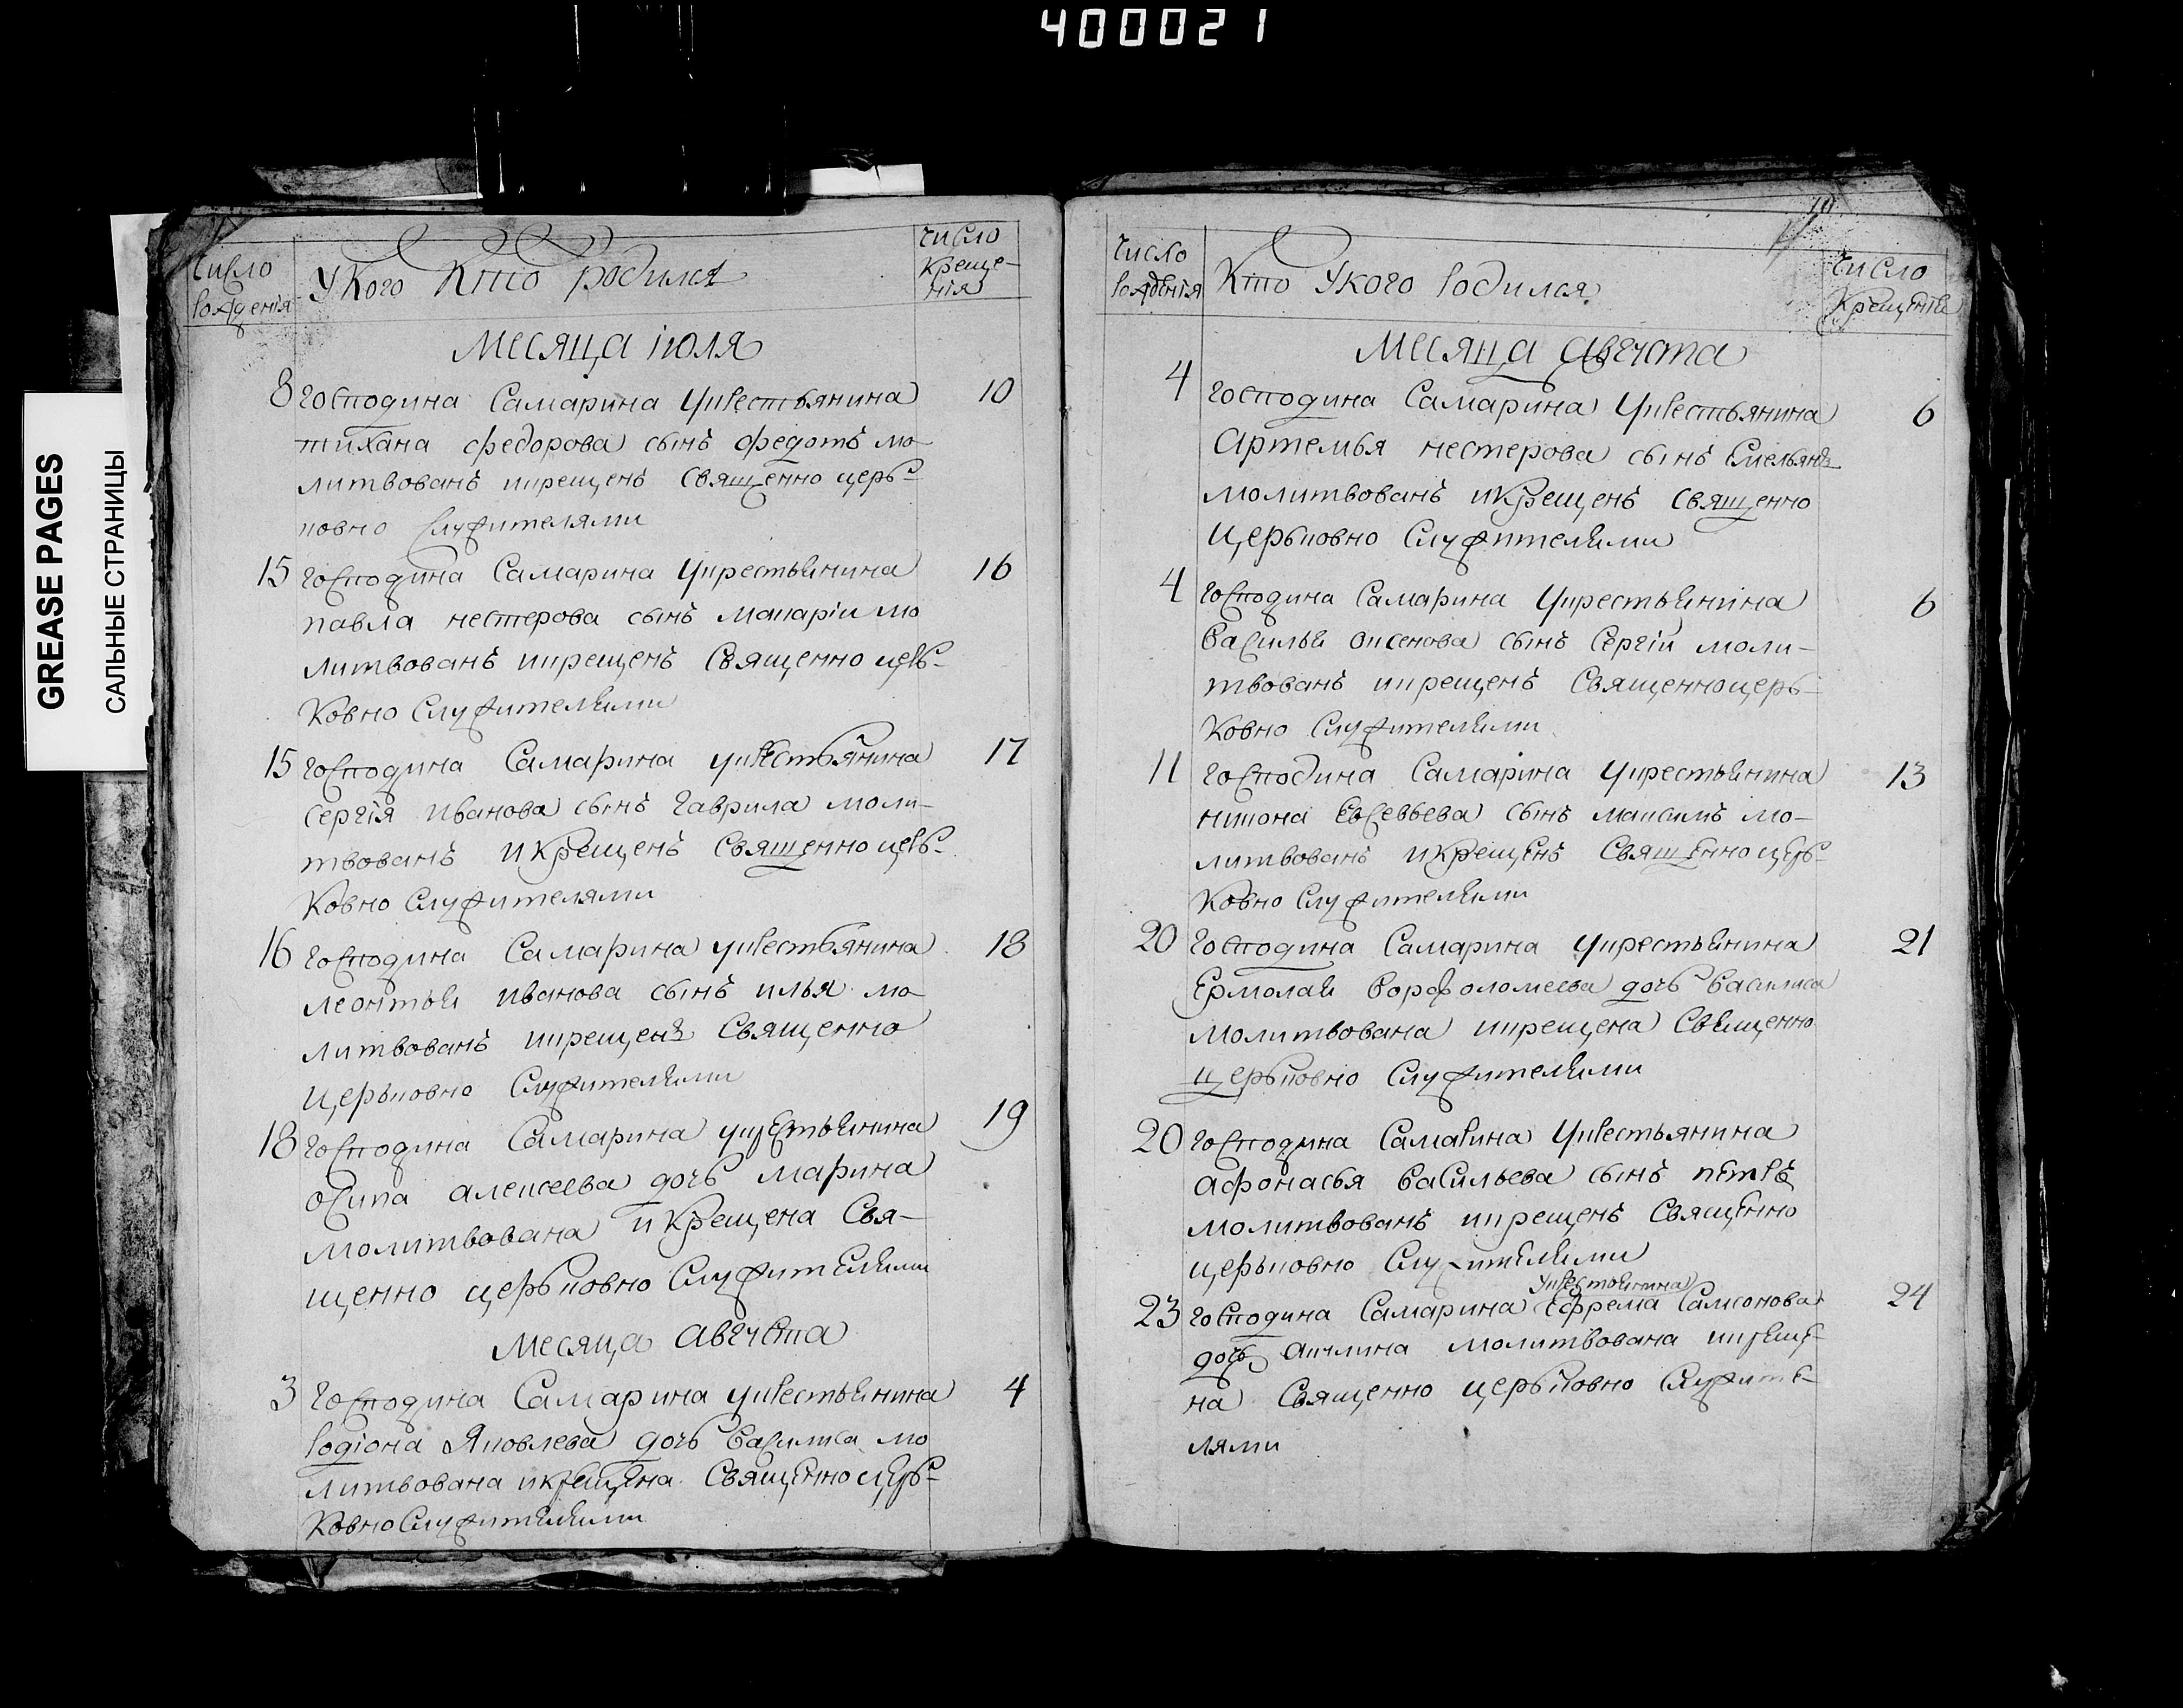 400021
GREASE PAGES
САЛЬНЫЕ СТРАНИЦЫ
Число рожденія
У Кого Кто родился
Число Креще-
нія
Месяца іюля
8 Господина Самарина укрестьянина 10
тихана федорова сынъ федотъ мо
литвованъ икрещенъ Священно церь-
ковно служителями
15 Господина Самарина укрестьянина 16
павла нестерова сынъ макаріи мо
литвованъ икрещенъ Священно церь-
Ковно Служителями
15 Господина Самарина укрестьянина 17
Сергія иванова сынъ Гаврила моли-
твованъ икрещенъ Священно церь-
Ковно Служителями
16 Господина Самарина укрестьянина 18
леонтья иванова сынъ илья мо-
литвованъ икрещенъ Священно
церьковно Служителями
18 Господина Самарина укрестьянина 19
осипа алексеева дочь марина
молитвована икрещена Свя-
щенно церьковно Служителями
Месяца августа
3 Господина Самарина укрестьянина 4
Родіона Яковлева дочь Василиса мо
литвована икрещена Священно церь-
Ковно Служителями
19
Число рожденія
Кто Укого Родился
Число
Крещенія
Месяца Августа
4 Господина Самарина укрестьянина 6
Артемья нестерова сынъ Емельянъ
молитвованъ икрещенъ Священно
церьковно Служителями
4 Господина Самарина укрестьянина 6
Василья оксенова сынъ Сергіи моли-
твованъ икрещенъ Священноцерь-
Ковно Служителями
11 Господина Самарина укрестьянина 13
никона Евсевьева сынъ максимъ мо-
литвованъ икрещенъ Священно церь-
Ковно Служителями
20 Господина Самарина укрестьянина 21
Ермолая Ворфоломеева дочь Василиса
молитвована икрещена Священно
церьковно Служителями
20 Господина Самарина укрестьянина
афонасья Васильева сынъ петръ
молитвованъ икрещенъ Священно
церьковно Служителями
укрестьянина
23 Господина Самарина Ефрема Самсонова 24
дочь акилина молитвована икреще-
на Священно церьковно Служите-
лями